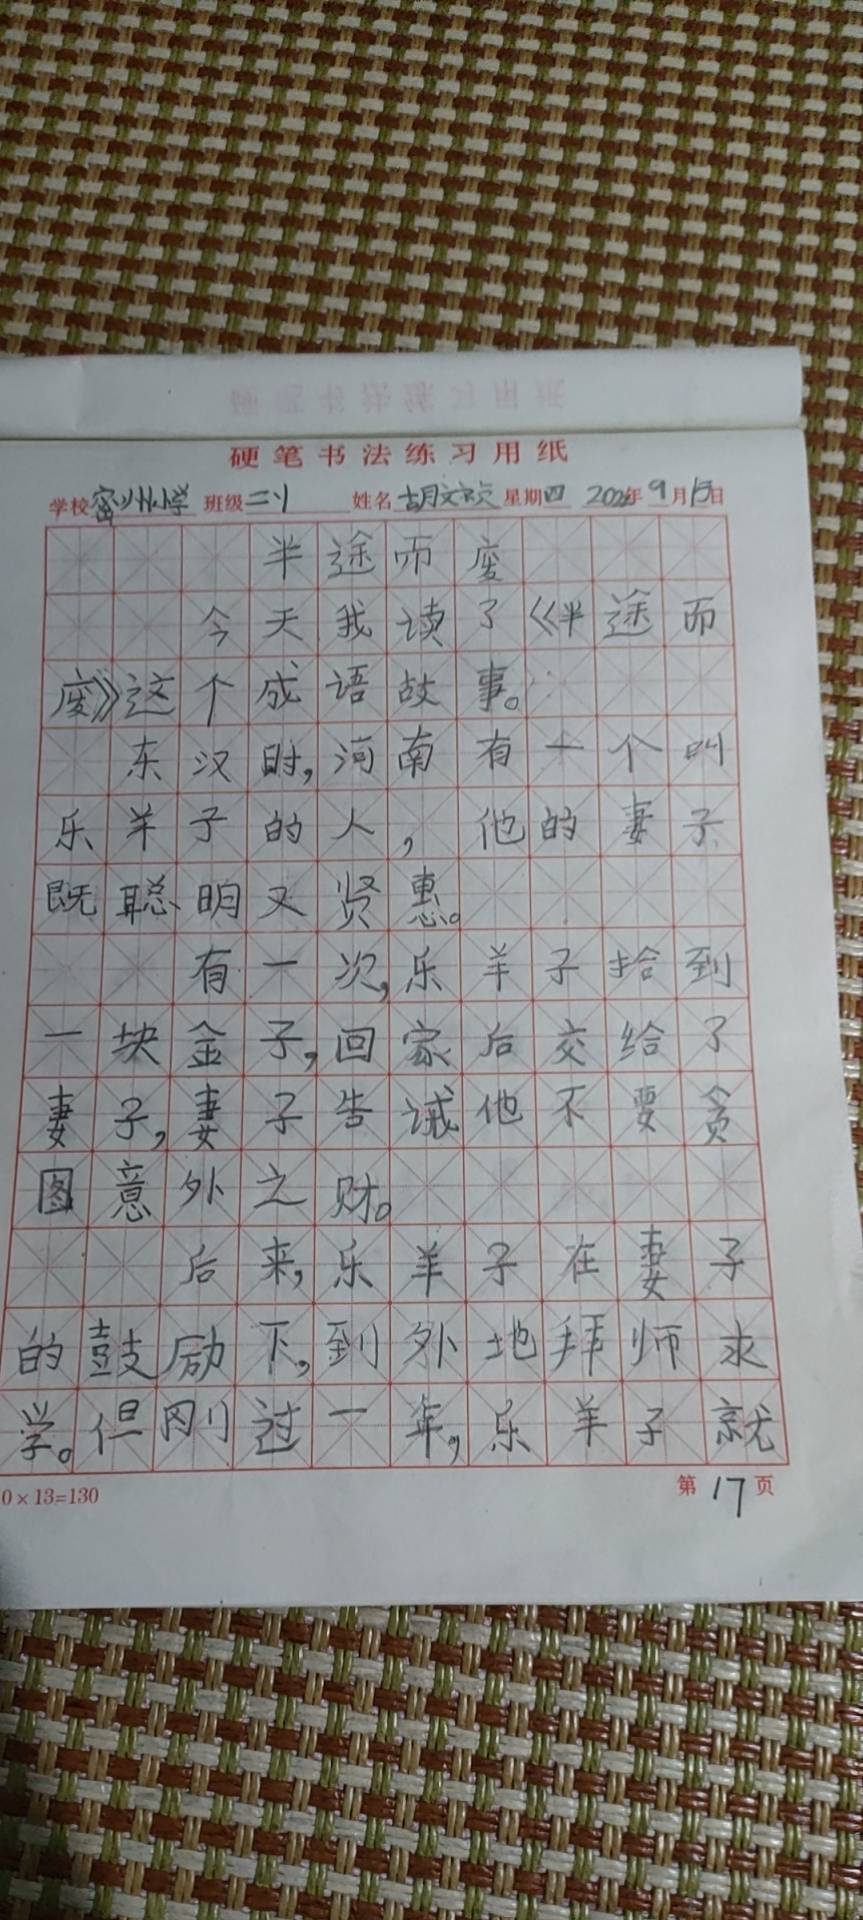 硬笔书法练习用纸
学校 密州小学 班级 二 姓名 胡文 星期四 年 9月15日
半途而废
今天我读了《半途而
废》这个成语故事。
东汉时,河南有一个叫
乐羊子的人,他的妻子
既聪明又贤惠。
有一次,乐羊子拾到
一块金子,回家后交给了
妻子,妻子告诫他不要贪
图意外之财。
后来,乐羊子在妻子
的鼓励下,到外地拜师求
学。但刚过一年,乐羊子就
0×13=130
第17页